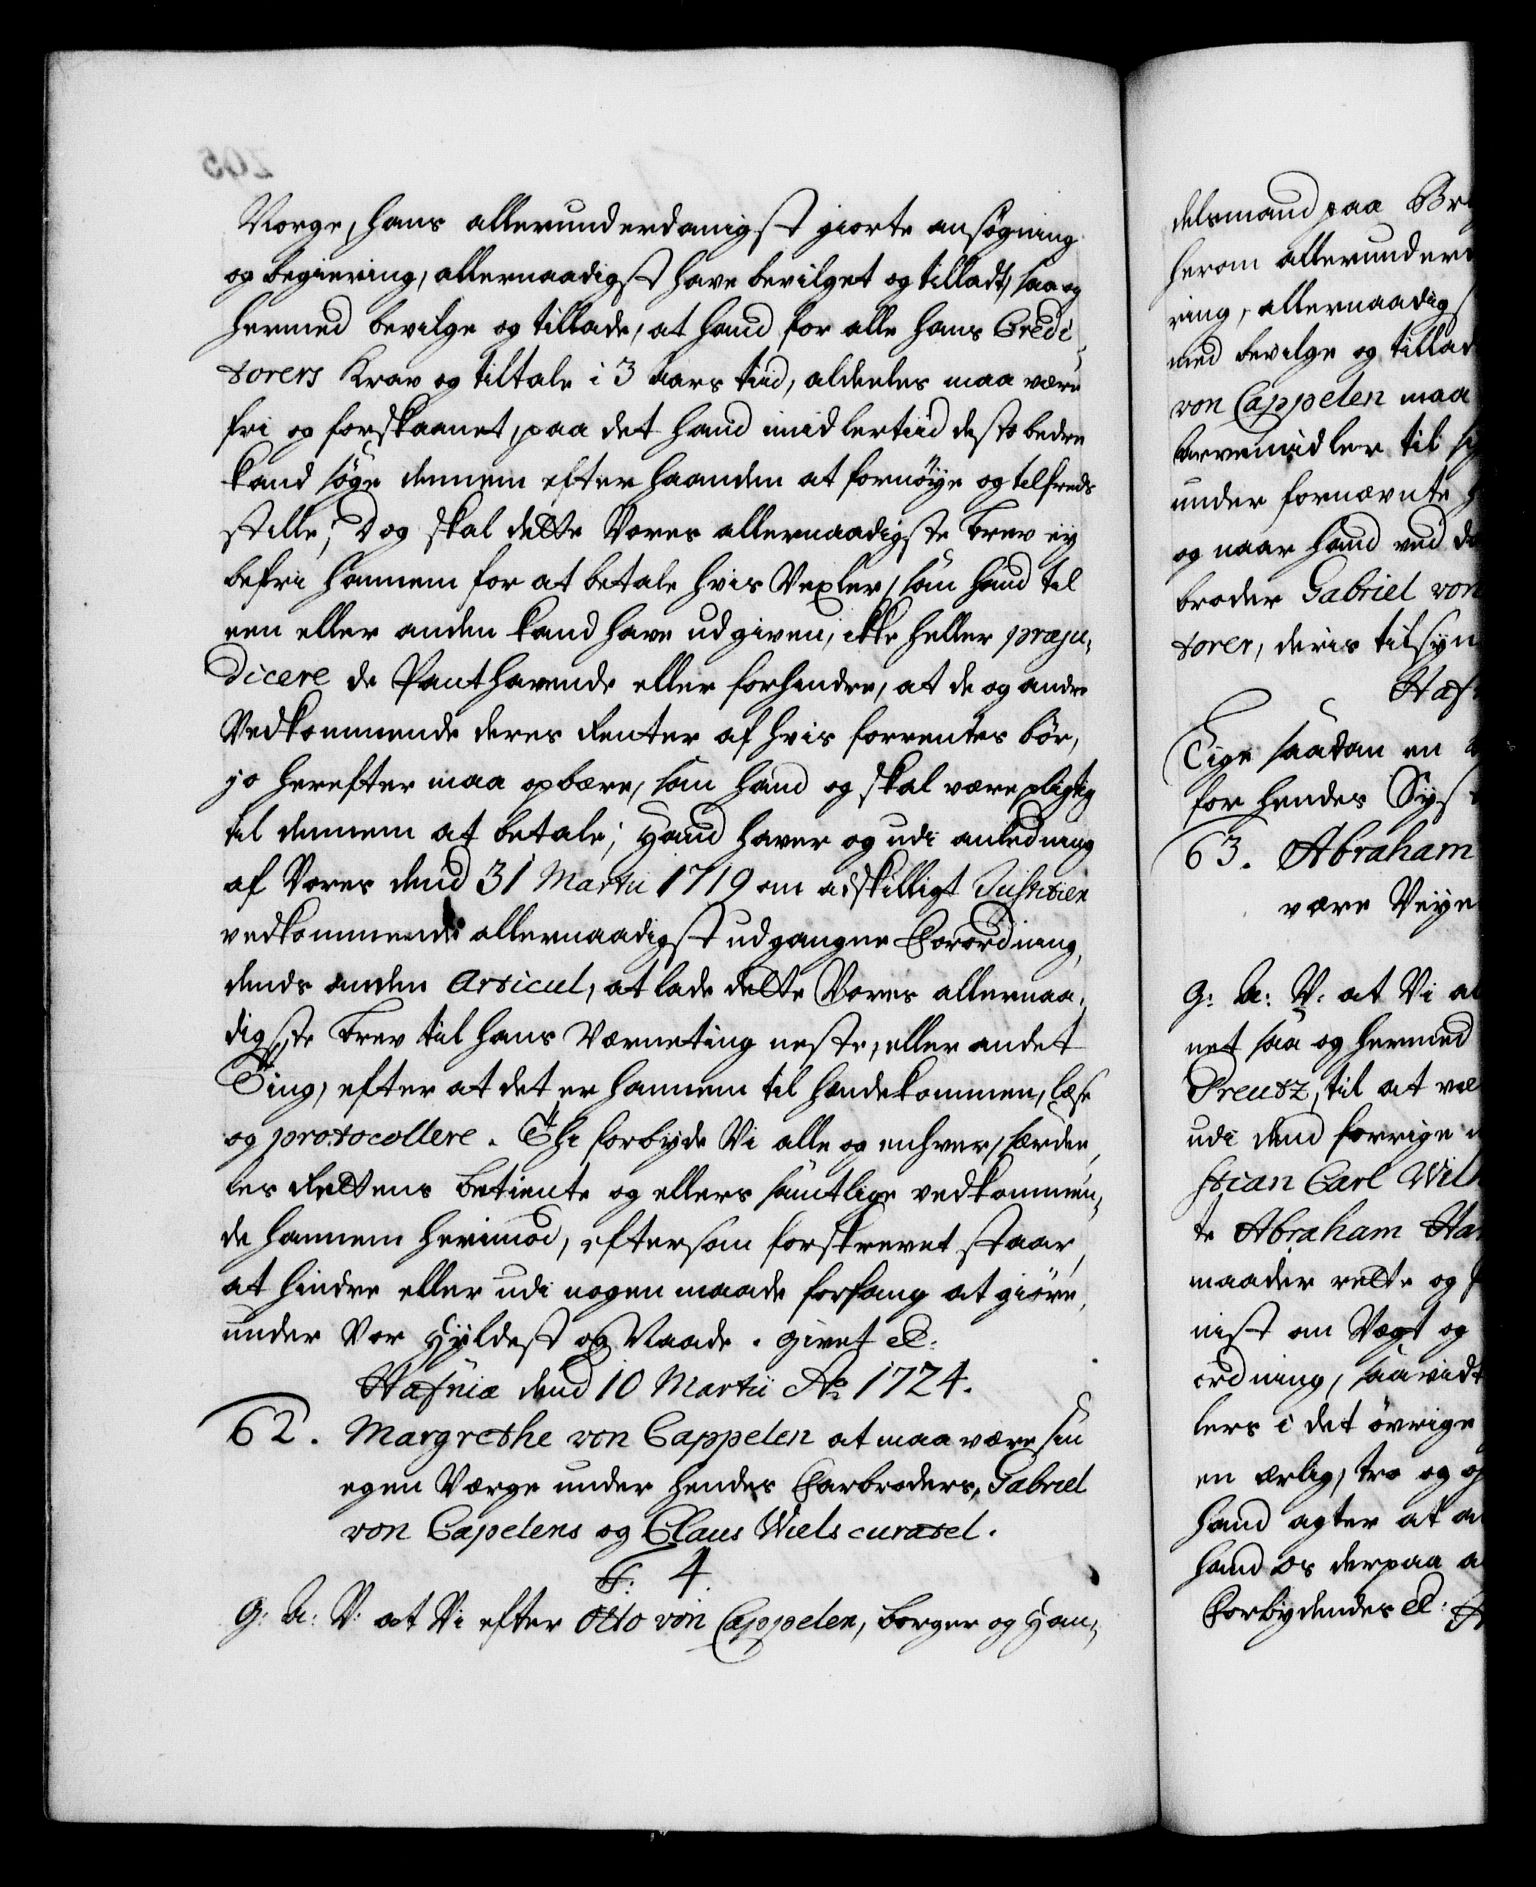 Norge, hans allerunderdanigst giorte ansøgning
og begiering, allernaadigst have bevilget og tilladt, saa og
hermed bevilge og tillade, at hand for alle hans Credi-
torers Krav og tiltale i 3 aars tiid, aldeeles maa være
fri og forskaanet, paa det hand imidlertiid desto bedre
kand søge dennem efterhaanden at fornøye og tilfreds
stille; Dog skal dette Vores allernaadigste brev ey
befri hannem for at betale hvis Vexler, som hand til
een eller anden kand have udgiven, ikke heller præju-
dicere de Panthavende eller forhindre, at de og andre
Vedkommende deres Renter af hvis forrentes bør,
jo herefter maa opbære, som hand og skal være pligtig
til dennem at betale; Hand haver og udi anledning
af Vores dend 31 Martii 1719 om adskilligt Justitien
vedkommende allernaadigst udgangne Forordning,
dends anden Articul, at lade dette Vores allernaa-
digste brev til hans Værneting neste, eller andet
Ting, efter at det er hannem til hændekommen, læse
og protocollere. Thi forbyde Vi alle og enhver, særdee-
les Rettens betiente og ellers samtlige vedkommen-
de hannem herimod, eftersom forskrevet staar,
at hindre eller udi nogen maade forfang at giøre,
under Vor Hyldest og Naade. givet et:
Hafniæ dend 10 Martii Ao 1724.
62. Margrethe von Cappelen at maa være sin
egen Værge under hendes Farbroders, Gabriel
von Capelens og Claus Wiels curatel.
F: 4.
G: A: V: at Vi efter Otto von Cappelen, borger og Han-
delsmand paa
herom
ring, allernaadigst
med bevilge og
von Cappelen maa
arvemidler til
under fornævnte
og naar hand ved
broder Gabriel von
torer, deris tilsyn
Lige saadan en
for hendes
63. Abraham
være
G: A: V: at Vi
net saa og hermed
Preutz, til at
udi dend forrige
stian Carl
te Abraham
maader rette og
nist om Vægt og
ordning, saavidt
lers i det øvrige
en ærlig, tro og
hand agter at
hand os derpaa
Forbydendes et: